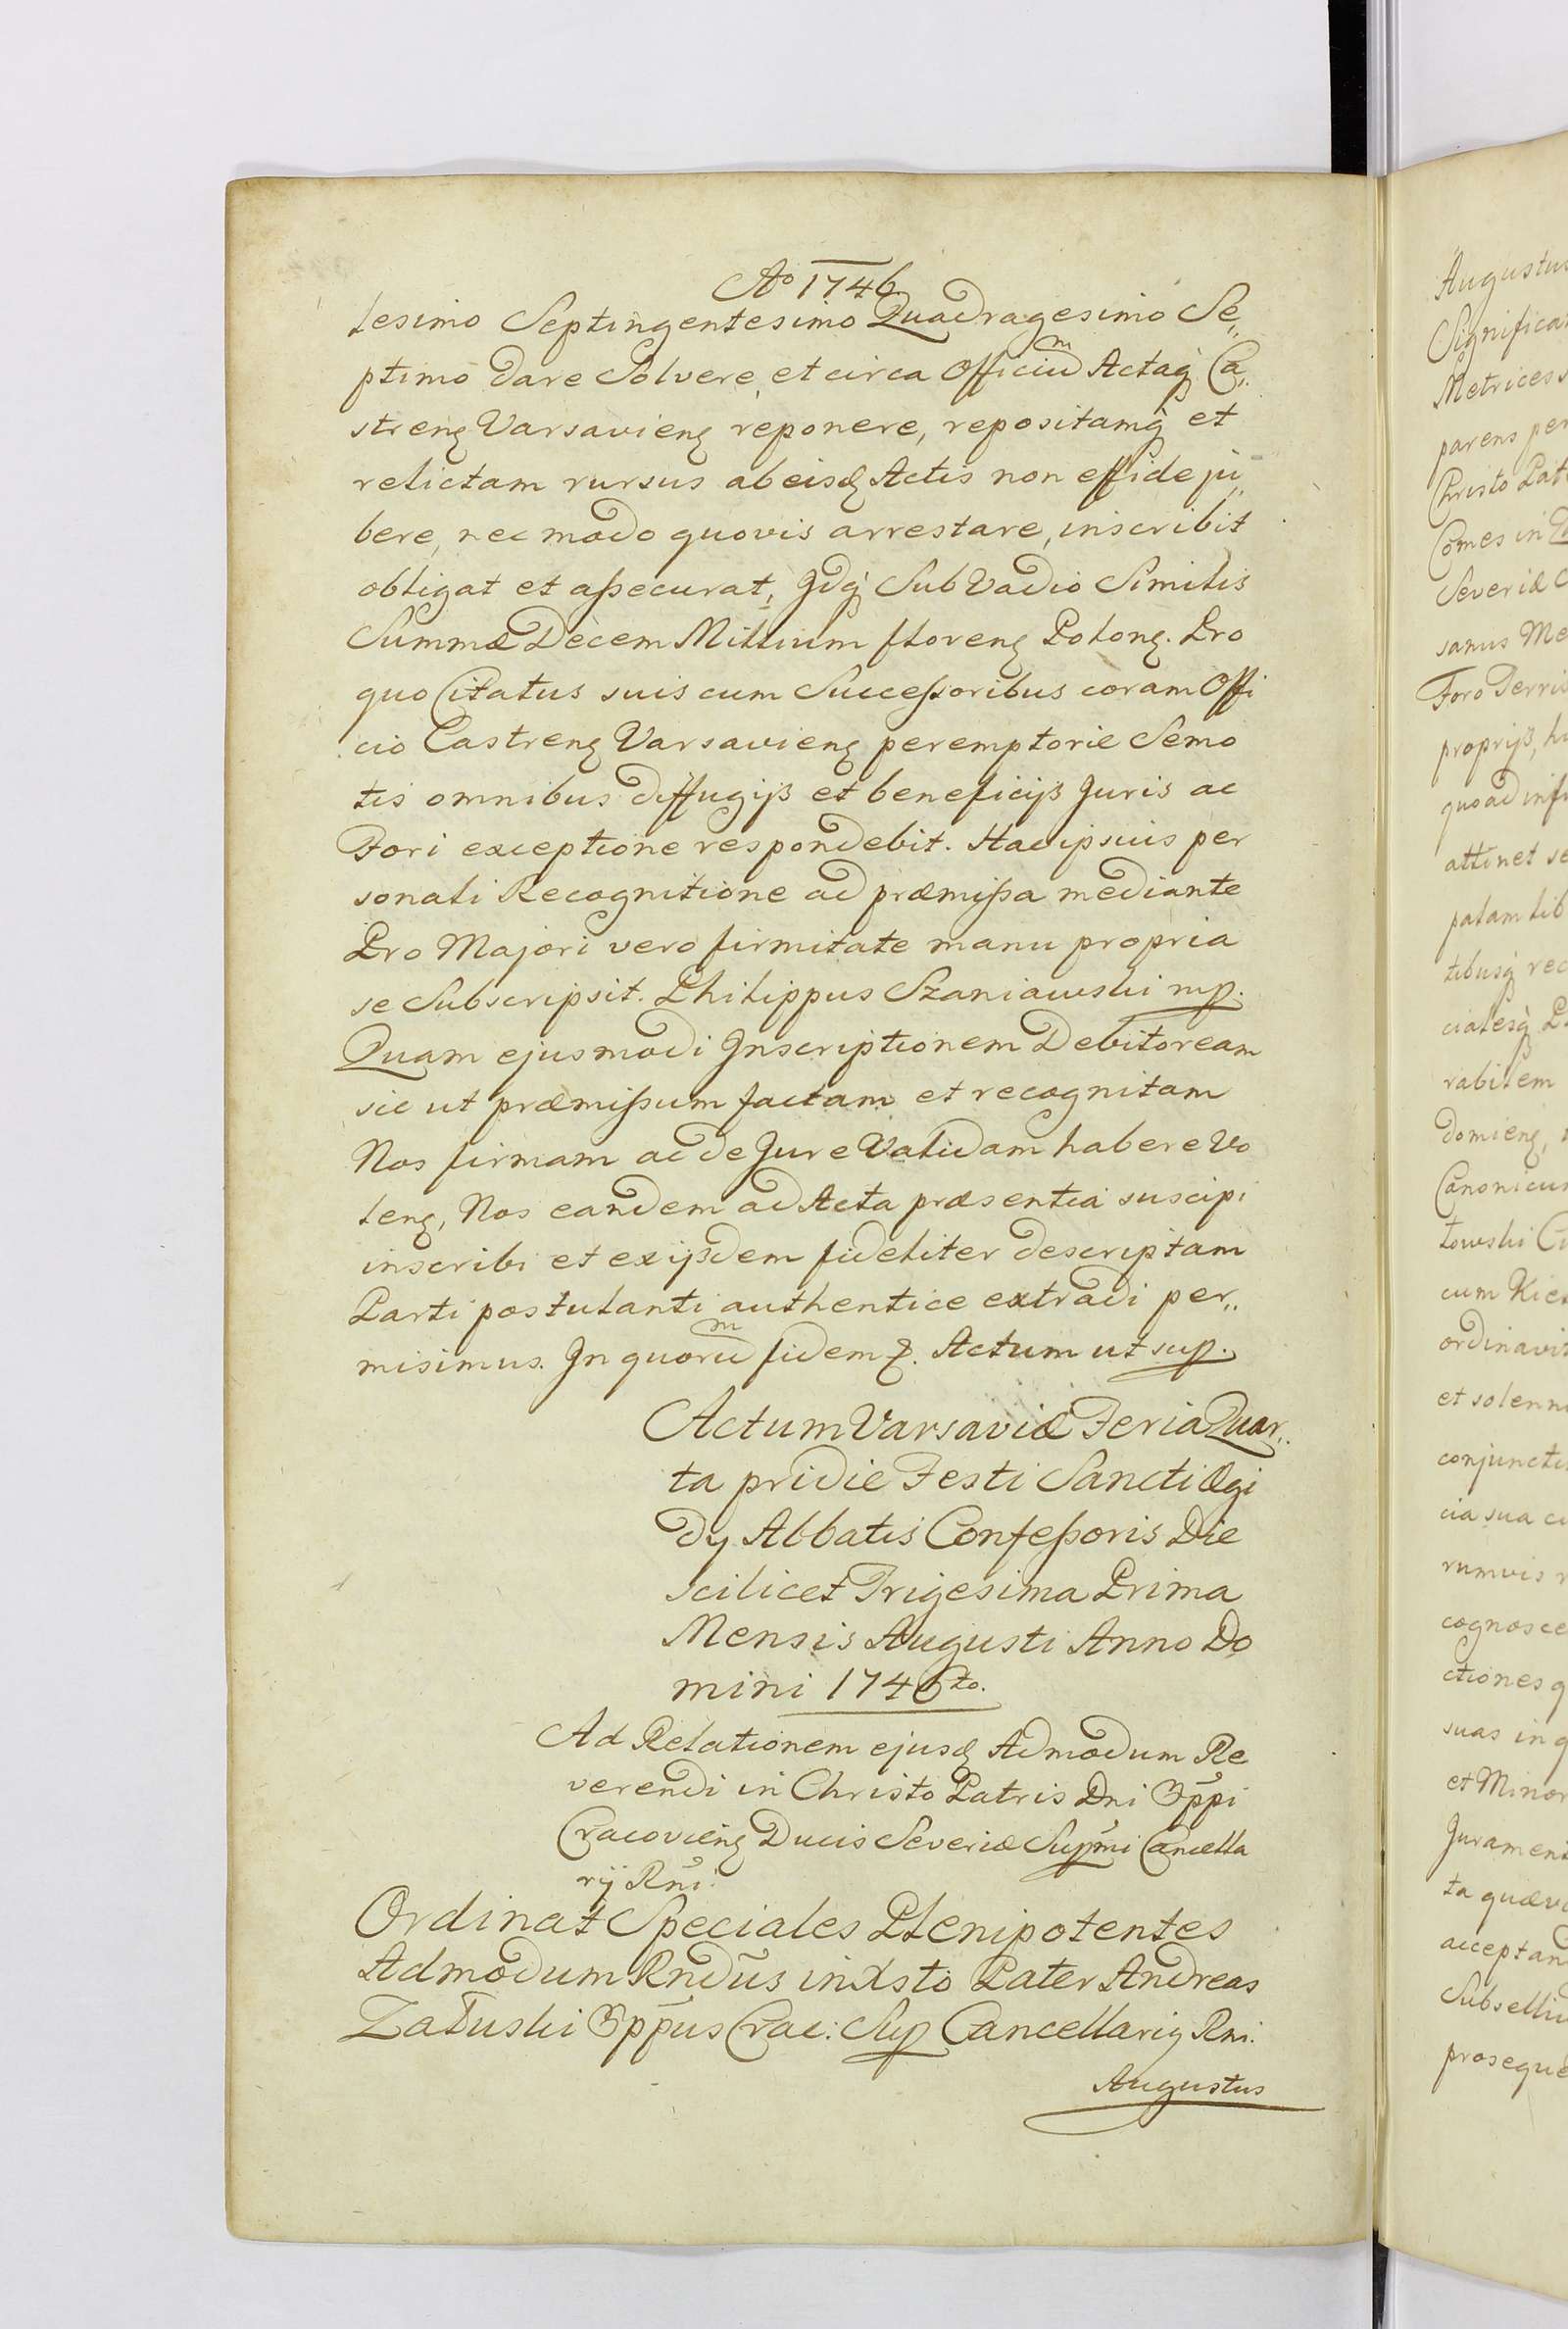 Ao 1746.
tesimo Septingentesimo Quadragesimo Se,,
ptimo dare Solvere, et circa Officium Actaq Ca,,
streng Varsavieng reponere, repositamq et
relictam rursus ab eisd Actis non effide ju,,
bere, nec modo quovis arrestare, inscribit
obligat et assecurat, Idq Sub Vadio Similis
Summæ Decem Millium floreng Polong. Pro
quo Citatus suis cum Successoribus coram Offi
cio Castreng Varsavieng peremptorie Semo
tis omnibus diffugijs et beneficijs Juris ac
Fori exceptione respondebit. Hac ipsius per
sonali Recognitione ad præmissa mediante
Pro Majori vero firmitate manu propria
se Subscripsit. Philippus Szaniawski mp.
Quam ejusmodi Inscriptionem Debitoream
sic ut præmissum factam et recognitam
Nos firmam ac de Jure Validam habere Vo
leng, Nos eandem ad Acta præsentia suscipi
inscribi et ex ijsdem fideliter descriptam
Parti postulanti authentice extradi per,,
misimus. In quorum fidem &. Actum ut sup.
Actum Varsaviæ Feria Quar,,
ta pridie Festi Sancti Ægi
dy Abbatis Confessoris Die
scilicet Trigesima Prima
Mensis Augusti Anno Do
mini 1746to.
Ad Relationem ejusd Admodum Re
verendi in Christo Patris Dni Eppi
Cracovieng Ducis Severiæ Suppmi Cancella
rij Rni.
Ordinat Speciales Plenipotentes
Admodum Rndus in Xsto Pater Andreas
Załuski Eppus Crac: Sup Cancellariy Rni.
Augustus
Augustus
Significa
Metrices
parens per
Christo Pat
Comes in
Severiæ
sanus Me
Foro Terris
proprijs, h
quoad inf
attinet se
palam lib
tibusq rec
cialesq
rabilem
domieng,
Canonicu
towski
cum Kie
ordinavit
et solenn
conjuncti
cia sua cu
rumvis
cognosce
ctiones q
suas in q
et Minor
Jurament
ta quævi
acceptan
Subselliu
prosequ